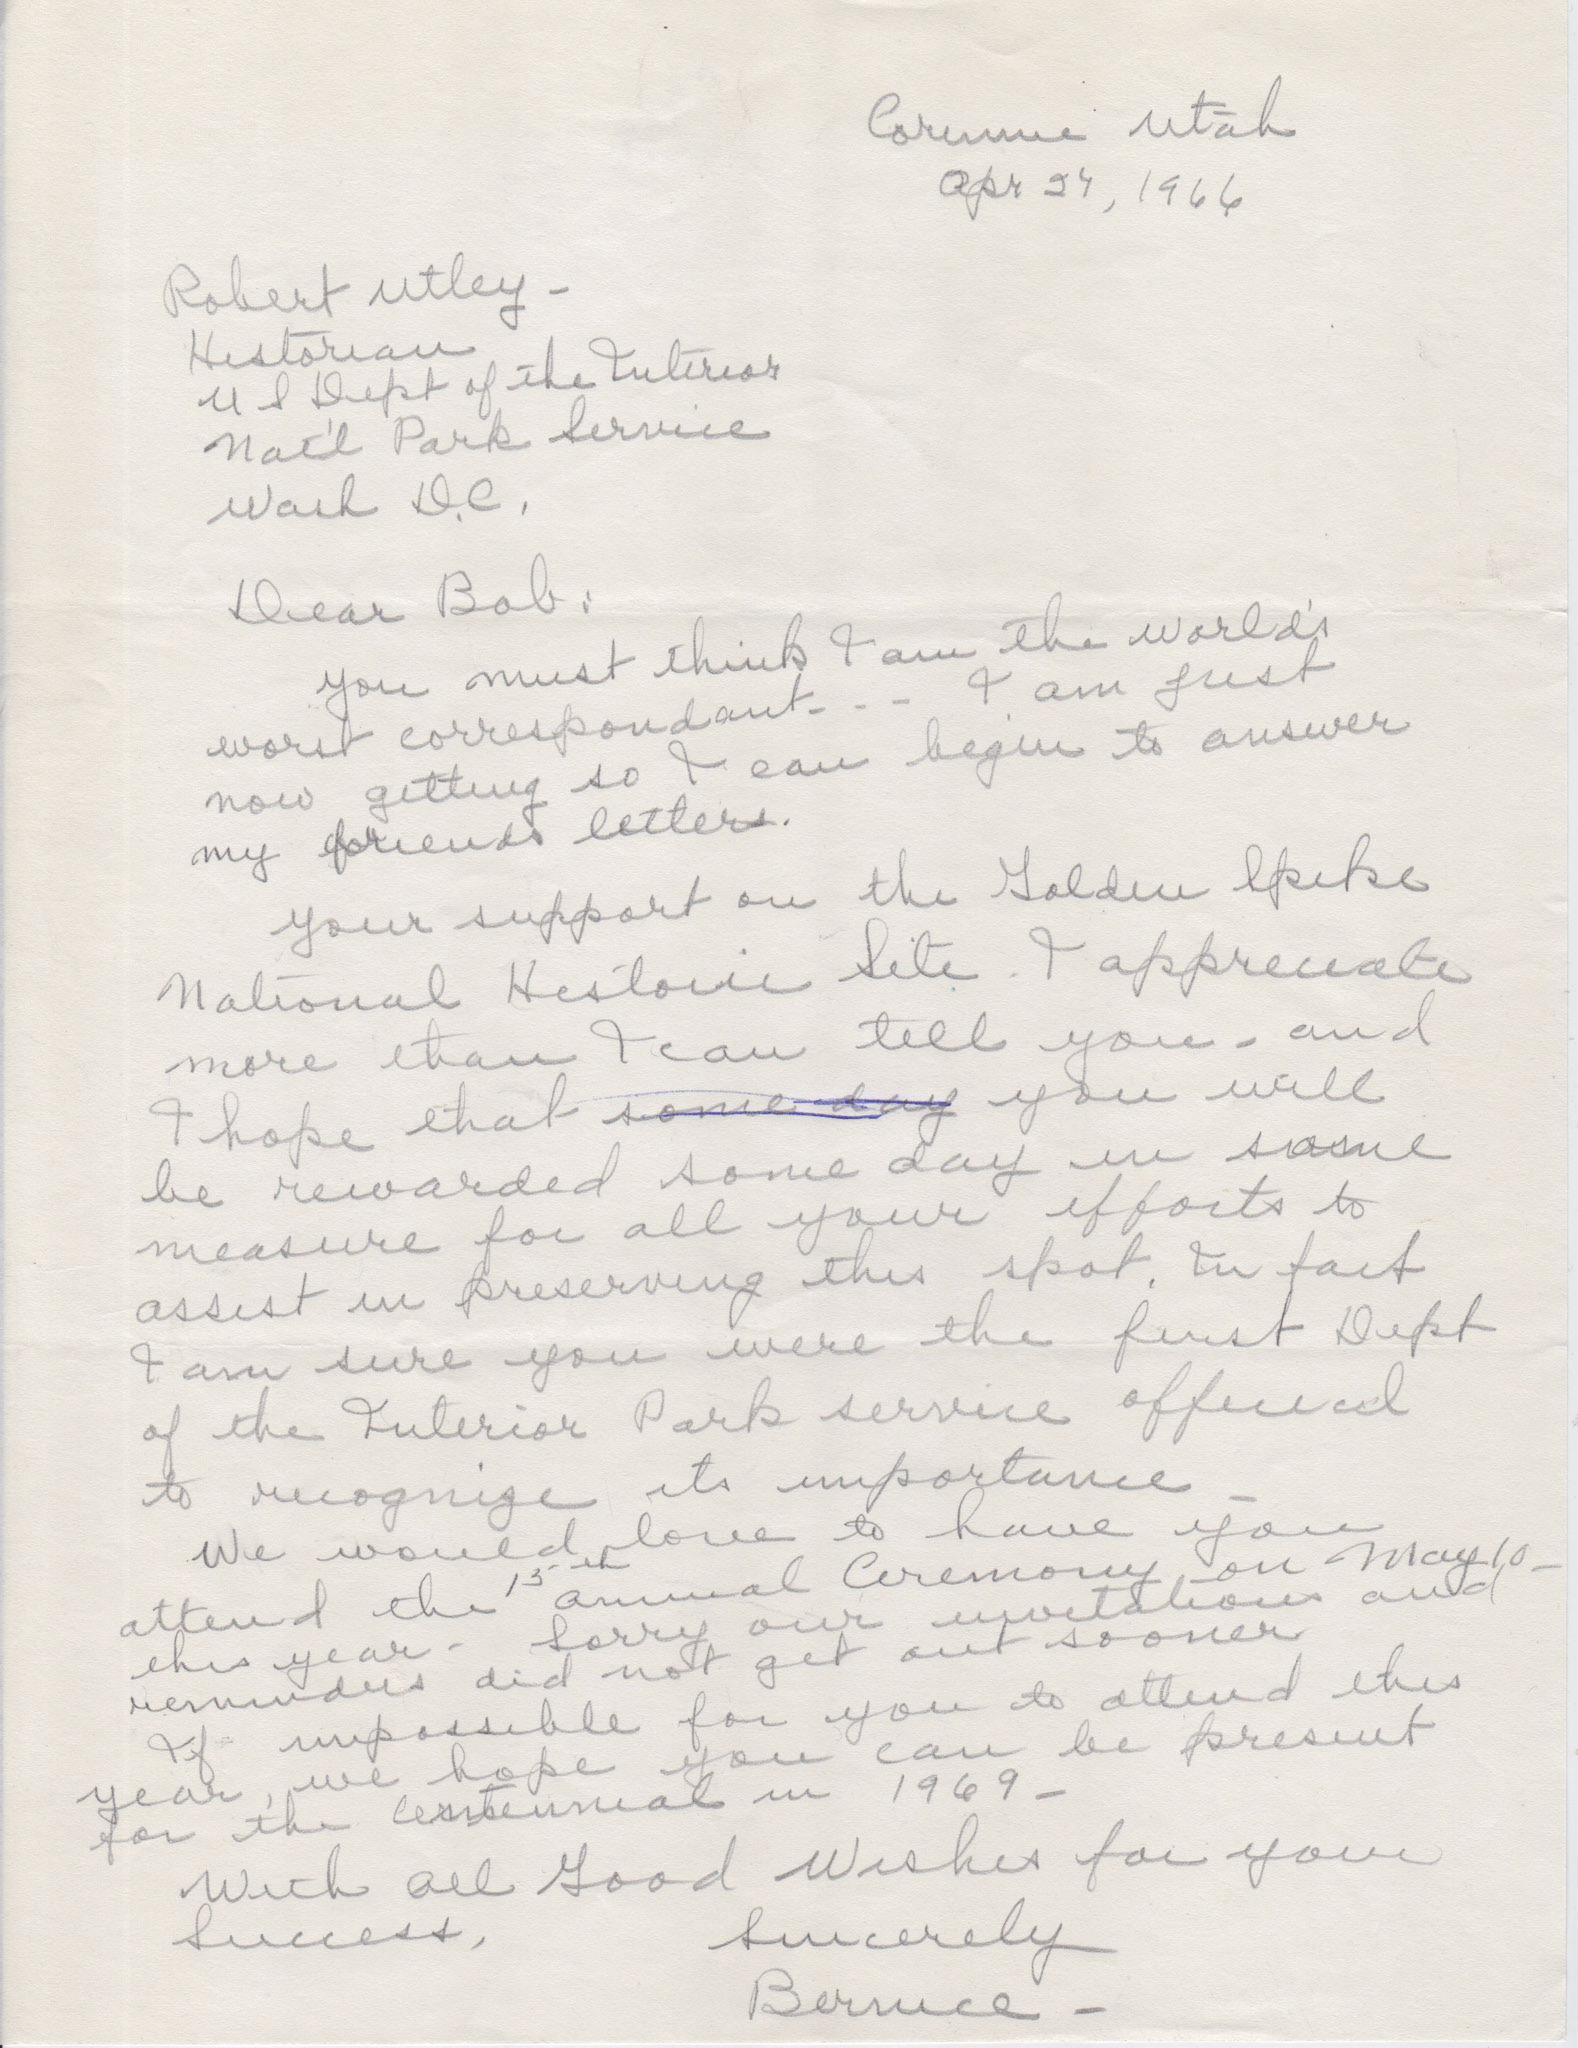 Corinne Utah
Apr 24, 1966
Robert Utley -
Historian
U S Dept of the Interior
Nat'l Park Service
Wash D.C.
Dear Bob:
You must think I am the world's
worst correspondant - - - I am just
now getting so I can begin to answer
my friends letters.
Your support on the Golden Spike
National Historic Site. I appreciate
more than I can tell you - and
I hope that some day you will
be rewarded some day in some
measure for all your efforts to
assist in preserving this spot. In fact
I am sure you were the first Dept
of the Interior Park service offical
to recognize its importance -
We would love to have you
attend the 15th annual Ceremony on May 10 -
this year - Sorry our invitations and
reminders did not get out sooner
If impossible for you to attend this
year, we hope you can be present
for the Centennial in 1969 -
With all Good Wishes for your
Success,
Sincerely
Bernice -